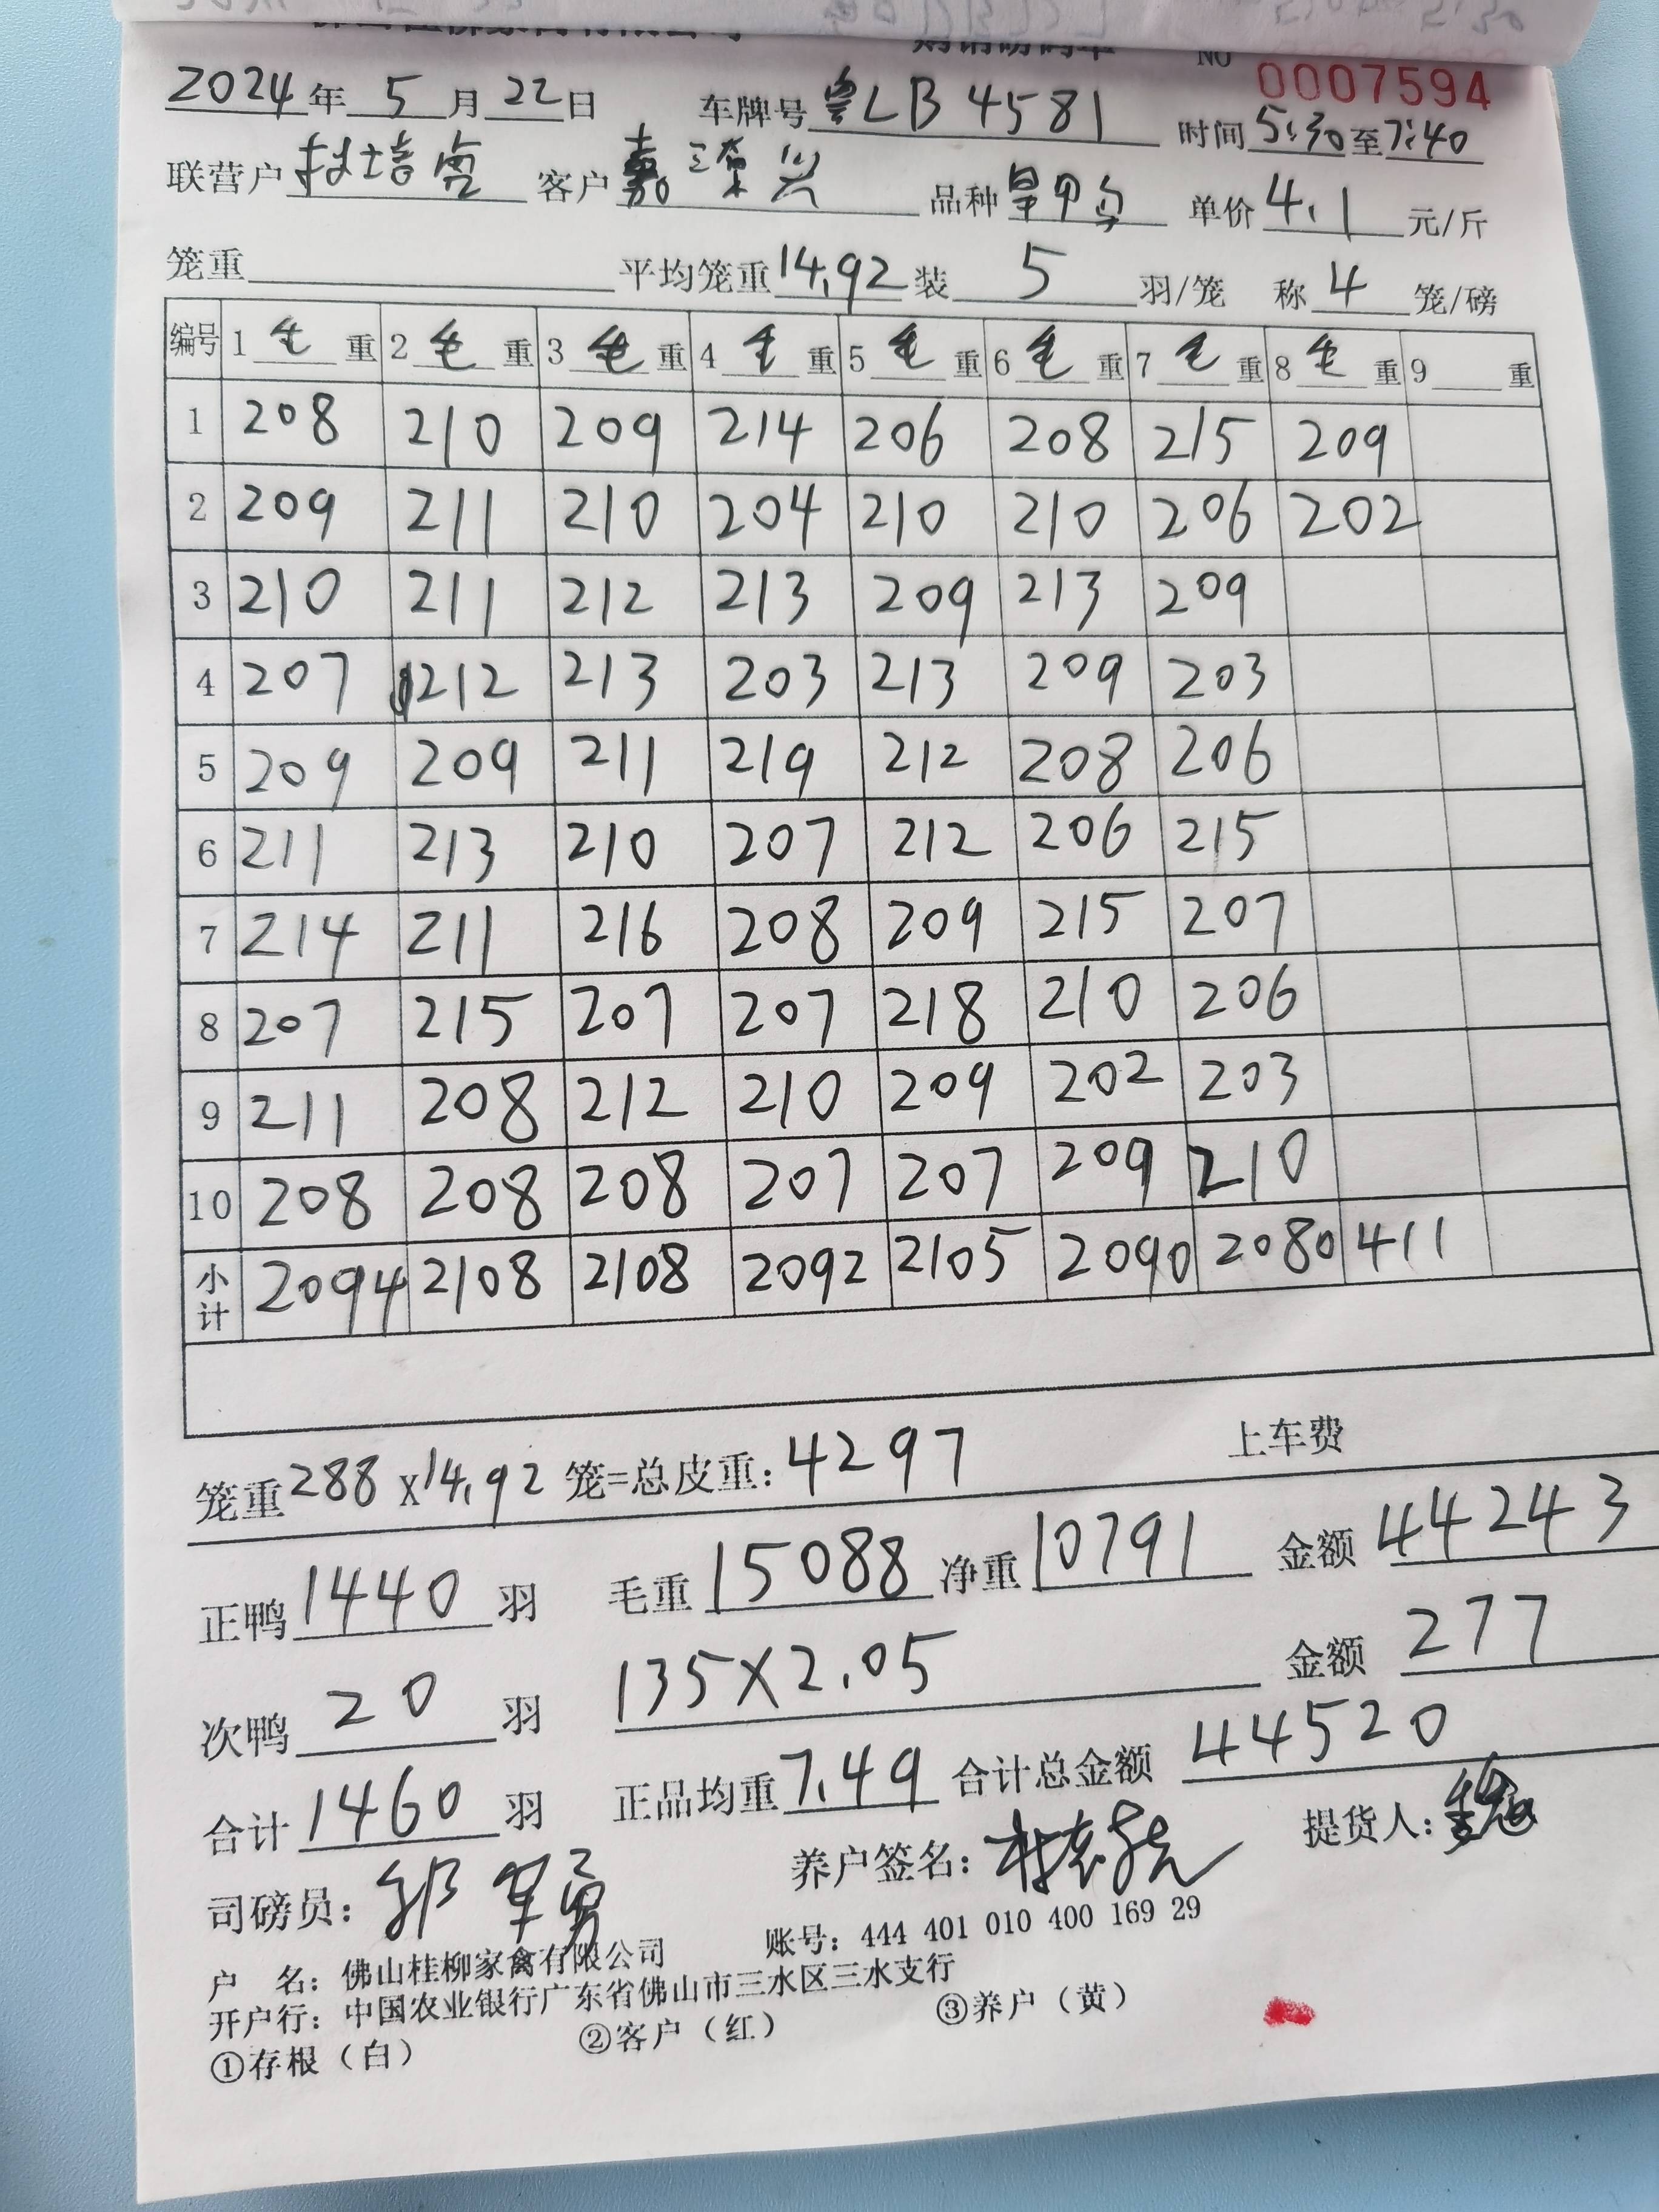 NO 0007594
2024年 5月 22日 车牌号 粤LB4581 时间 5:30 至 7:40
联营户 客户 嘉 荣兴 品种 单价 4.1 元/斤
笼重 平均笼重 14.92 装 5 羽/笼 称 4 笼/磅
编号 1 毛 重 2 毛 重 3 毛 重 4 毛 重 5 毛 重 6 毛 重 7 毛 重 8 毛 重 9 重
1 208 210 209 214 206 208 215 209
2 209 211 210 204 210 210 206 202
3 210 211 212 213 209 213 209
4 207 212 213 203 213 209 203
5 209 209 211 219 212 208 206
6 211 213 210 207 212 206 215
7 214 211 216 208 209 215 207
8 207 215 207 207 218 210 206
9 211 208 212 210 209 202 203
10 208 208 208 207 207 209 210
小计 2094 2108 2108 2092 2105 2090 2080 411
笼重 288 X 14.92 笼=总皮重: 4297 上车费
正鸭 1440 羽 毛重 15088 净重 10791 金额 44243
次鸭 20 羽 135X2.05 金额 277
合计 1460 羽 正品均重 7.49 合计总金额 44520
司磅员: 养户签名: 提货人:
户 名: 佛山桂柳家禽有限公司 账号: 444 401 010 400 169 29
开户行: 中国农业银行广东省佛山市三水区三水支行
①存根（白） ②客户（红） ③养户（黄）